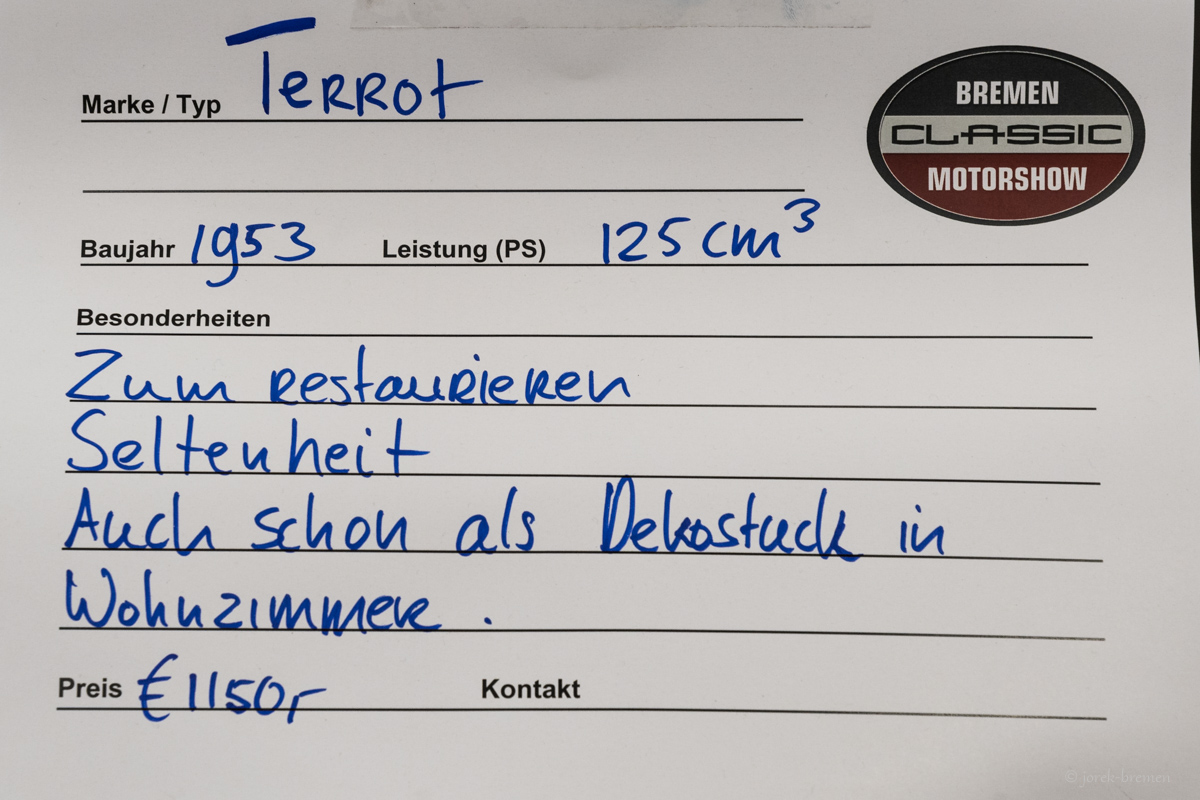 Marke / Typ Terrot
BREMEN
CLASSIC
MOTORSHOW
Baujahr 1953 Leistung (PS) 125 cm³
Besonderheiten
Zum restaurieren
Seltenheit
Auch schon als Dekostuck in
Wohnzimmer .
Preis € 1150,- Kontakt
© jorek-bremen